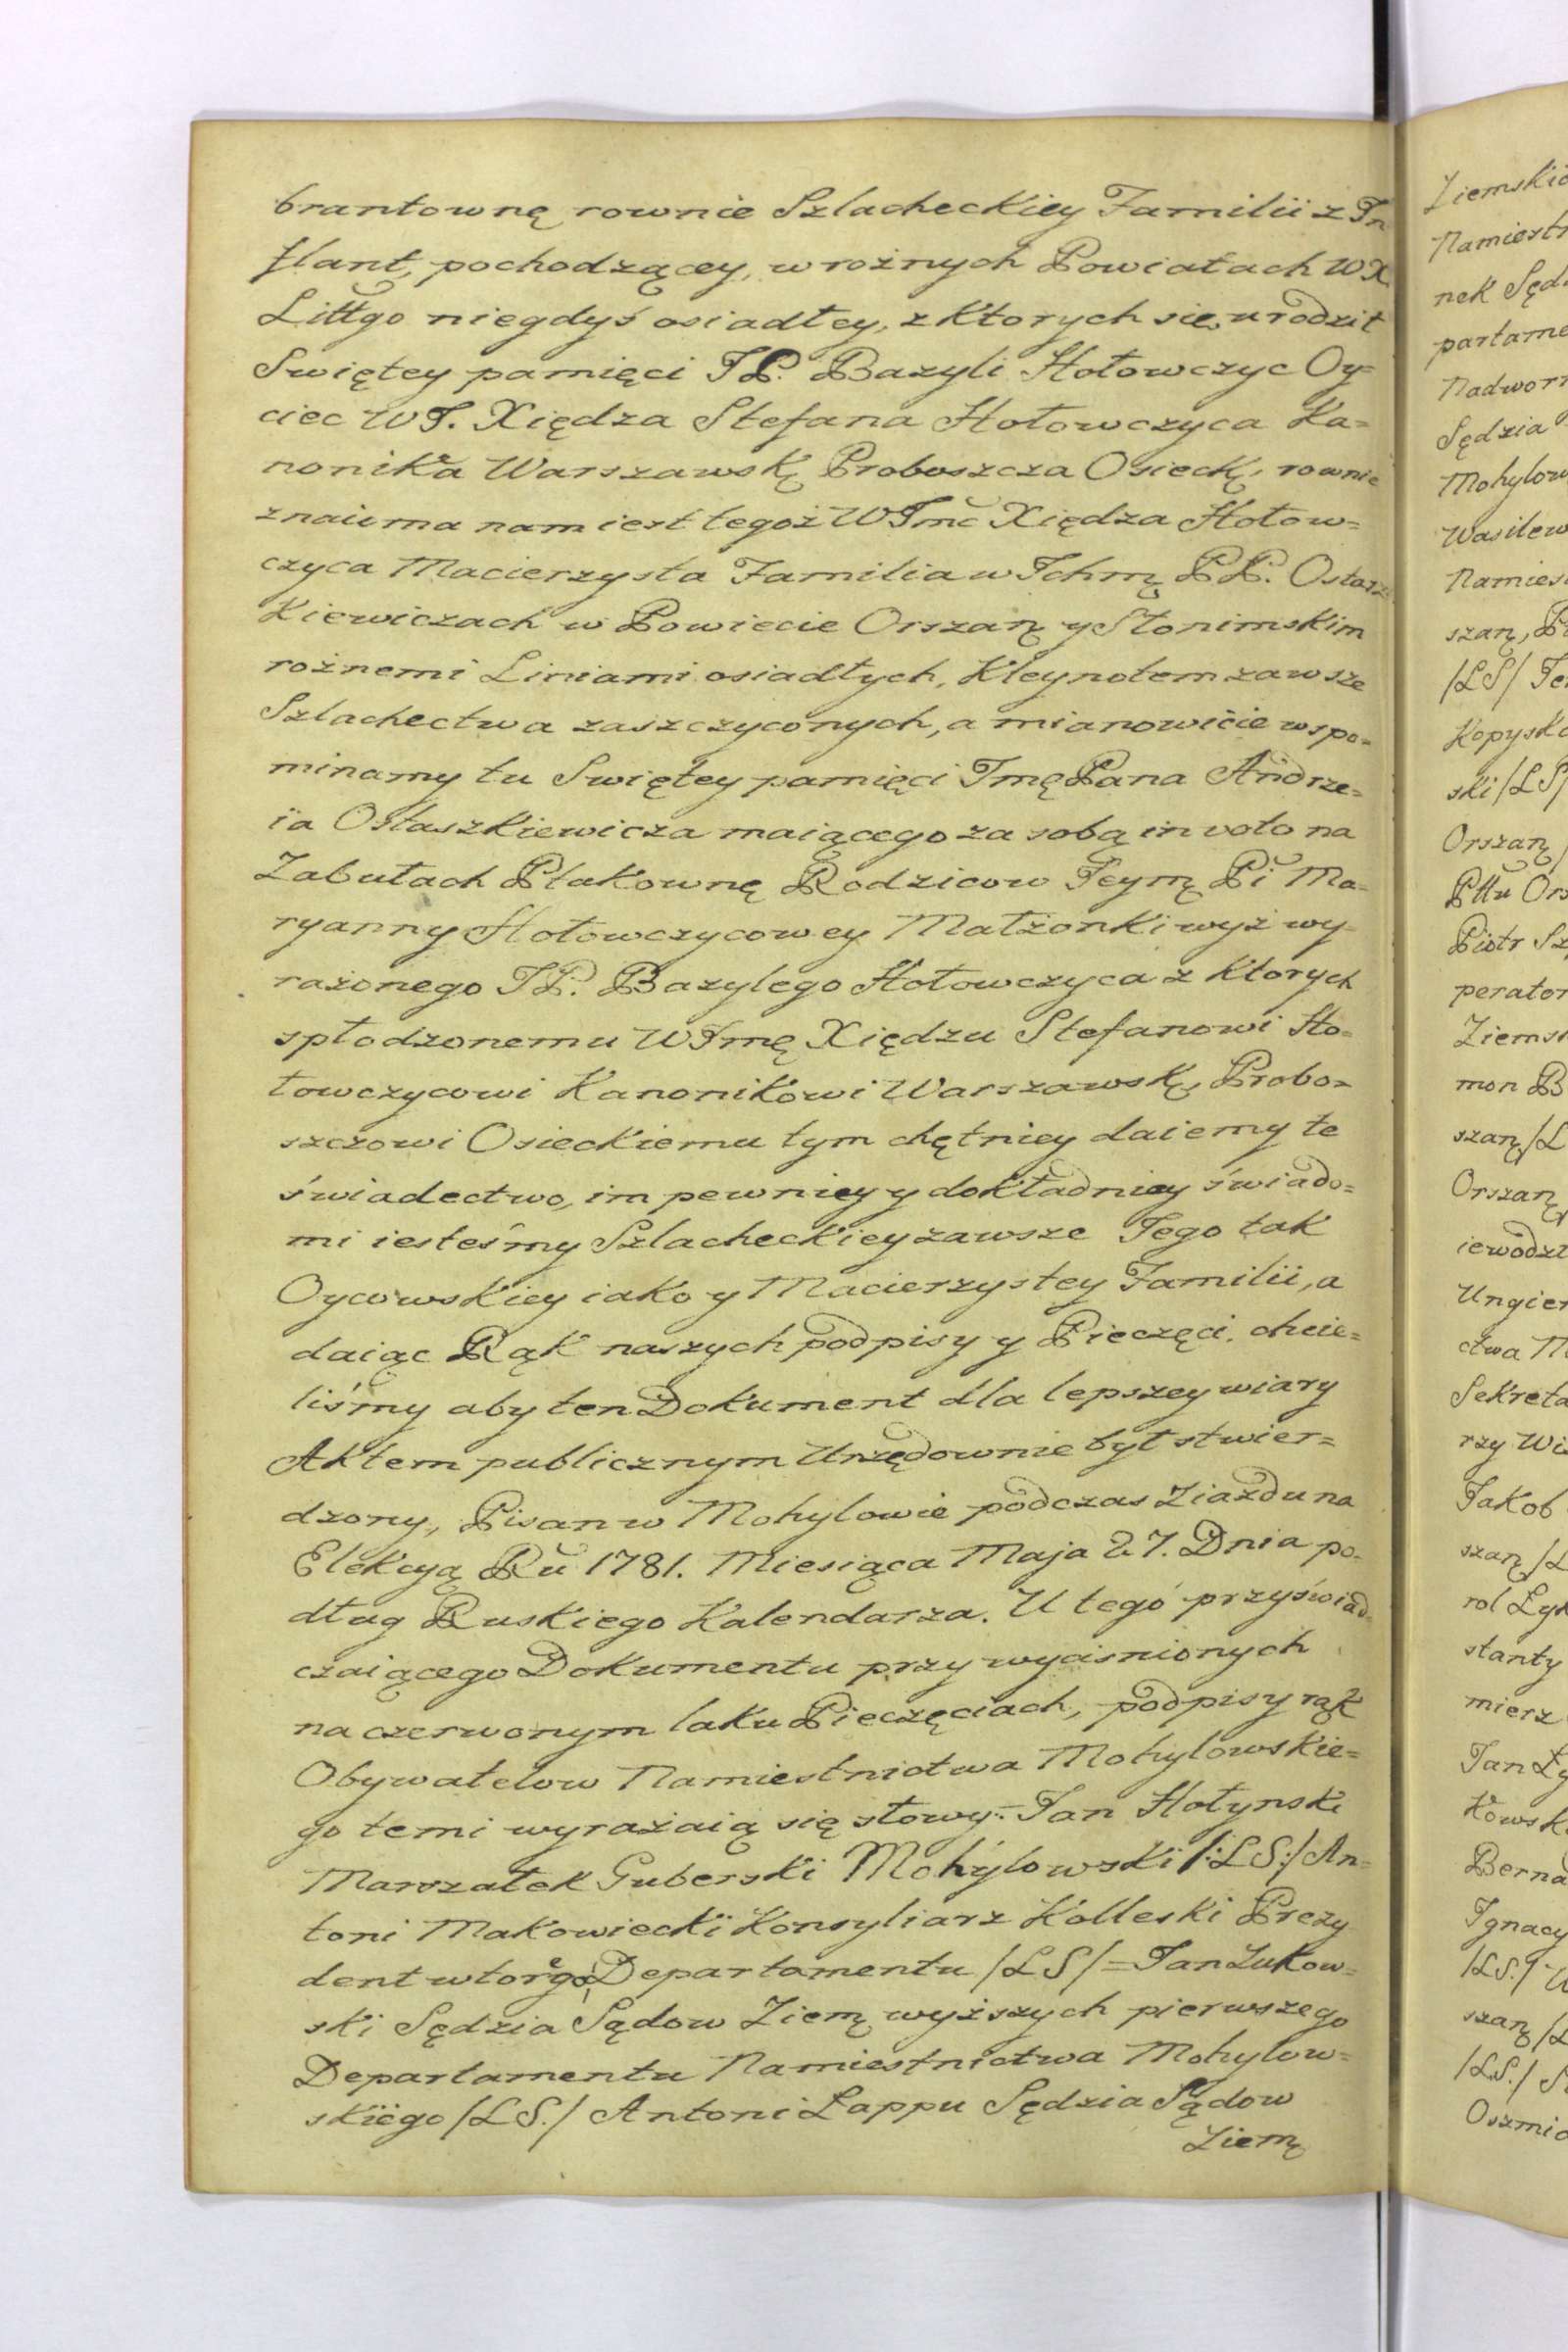 brantownę rownie Szlacheckiey Familii z In
flant, pochodzącey, w rożnych Powiatach WX
Littgo niegdyś osiadłey, z Ktorych się urodził
Swiętey pamięci JP. Bazyli Hołowczyc Oy=
ciec WJ. Xiędza Stefana Hołowczyca Ka=
nonika Warszawsk Proboszcza Osieck, rownie
znaiuma nam iest tegoż WJmć Xiędza Hołow=
czyca Macierzysta Familia w Jchm PP. Ostasz
Kiewiczach w Powiecie Orszań y Słonimskim
rożnemi Liniami osiadłych, Kleynotem zawsze
Szlachectwa zaszczyconych, a mianowicie wspo=
minamy tu Swiętey pamięci Jmę Pana Andrze=
ia Ostaszkiewicza maiącego za sobą in voto na
Zabułach Ptakownę Rodzicow Jeym Pi Ma=
ryanny Hołowczycowey Małżonki wyż wy=
rażonego JP. Bazylego Hołowczyca z Ktorych
spłodzonemu WJmę Xiędzu Stefanowi Ho=
łowczycowi Kanonikowi Warszawsk, Probo=
szczowi Osieckiemu tym chętniey daiemy te
świadectwo, im pewniey y dokładniey świado=
mi iesteśmy Szlacheckiey zawsze Jego tak
Oycowskiey iako y Macierzystey Familii, a
daiąc Rąk naszych podpisy y Pieczęci, chcie=
liśmy aby ten Dokument dla lepszey wiary
Aktem publicznym Urzędownie był stwier=
dzony, Pisan w Mohylowie podczas Ziazdu na
Elekcyą Ru 1781. Miesiąca Maja 27. Dnia po=
dług Ruskiego Kalendarza. U tego przyświad=
czaiącego Dokumentu przy wyciśnionych
na czerwonym laku Pieczęciach, podpisy rąk
Obywatelow Namiestnictwa Mohylowskie=
go temi wyrażaią się słowy:= Jan Hołynski
Marszałek Guberski Mohylowski /:LS:/ An=
toni Makowiecki Konsyliarz Kolleski Prezy
dent wtorego Departamentu /LS/ = Jan Żukow=
ski Sędzia Sądow Ziem wyższych pierwszego
Departamentu Namiestnictwa Mohylow=
skiego /LS./ Antoni Łappu Sędzia Sądow
Ziem
Namiestn
nek Sęd
partame
Nadworn
Sędzia
Mohylow
Wasilew
Namies
/LS/
Kopysk
ski /LS/
Orszań
Pttu Ors
Piotr Sz
perator
Ziems
mon B
Orszań
iewodz
Ungier
ctwa M
Sekreta
rzy Wi
Jakob
rol Łyk
stanty
mierz
Jan Ły
kowsk
Berna
Ignacy
/LS./
/LS./
Oszmia